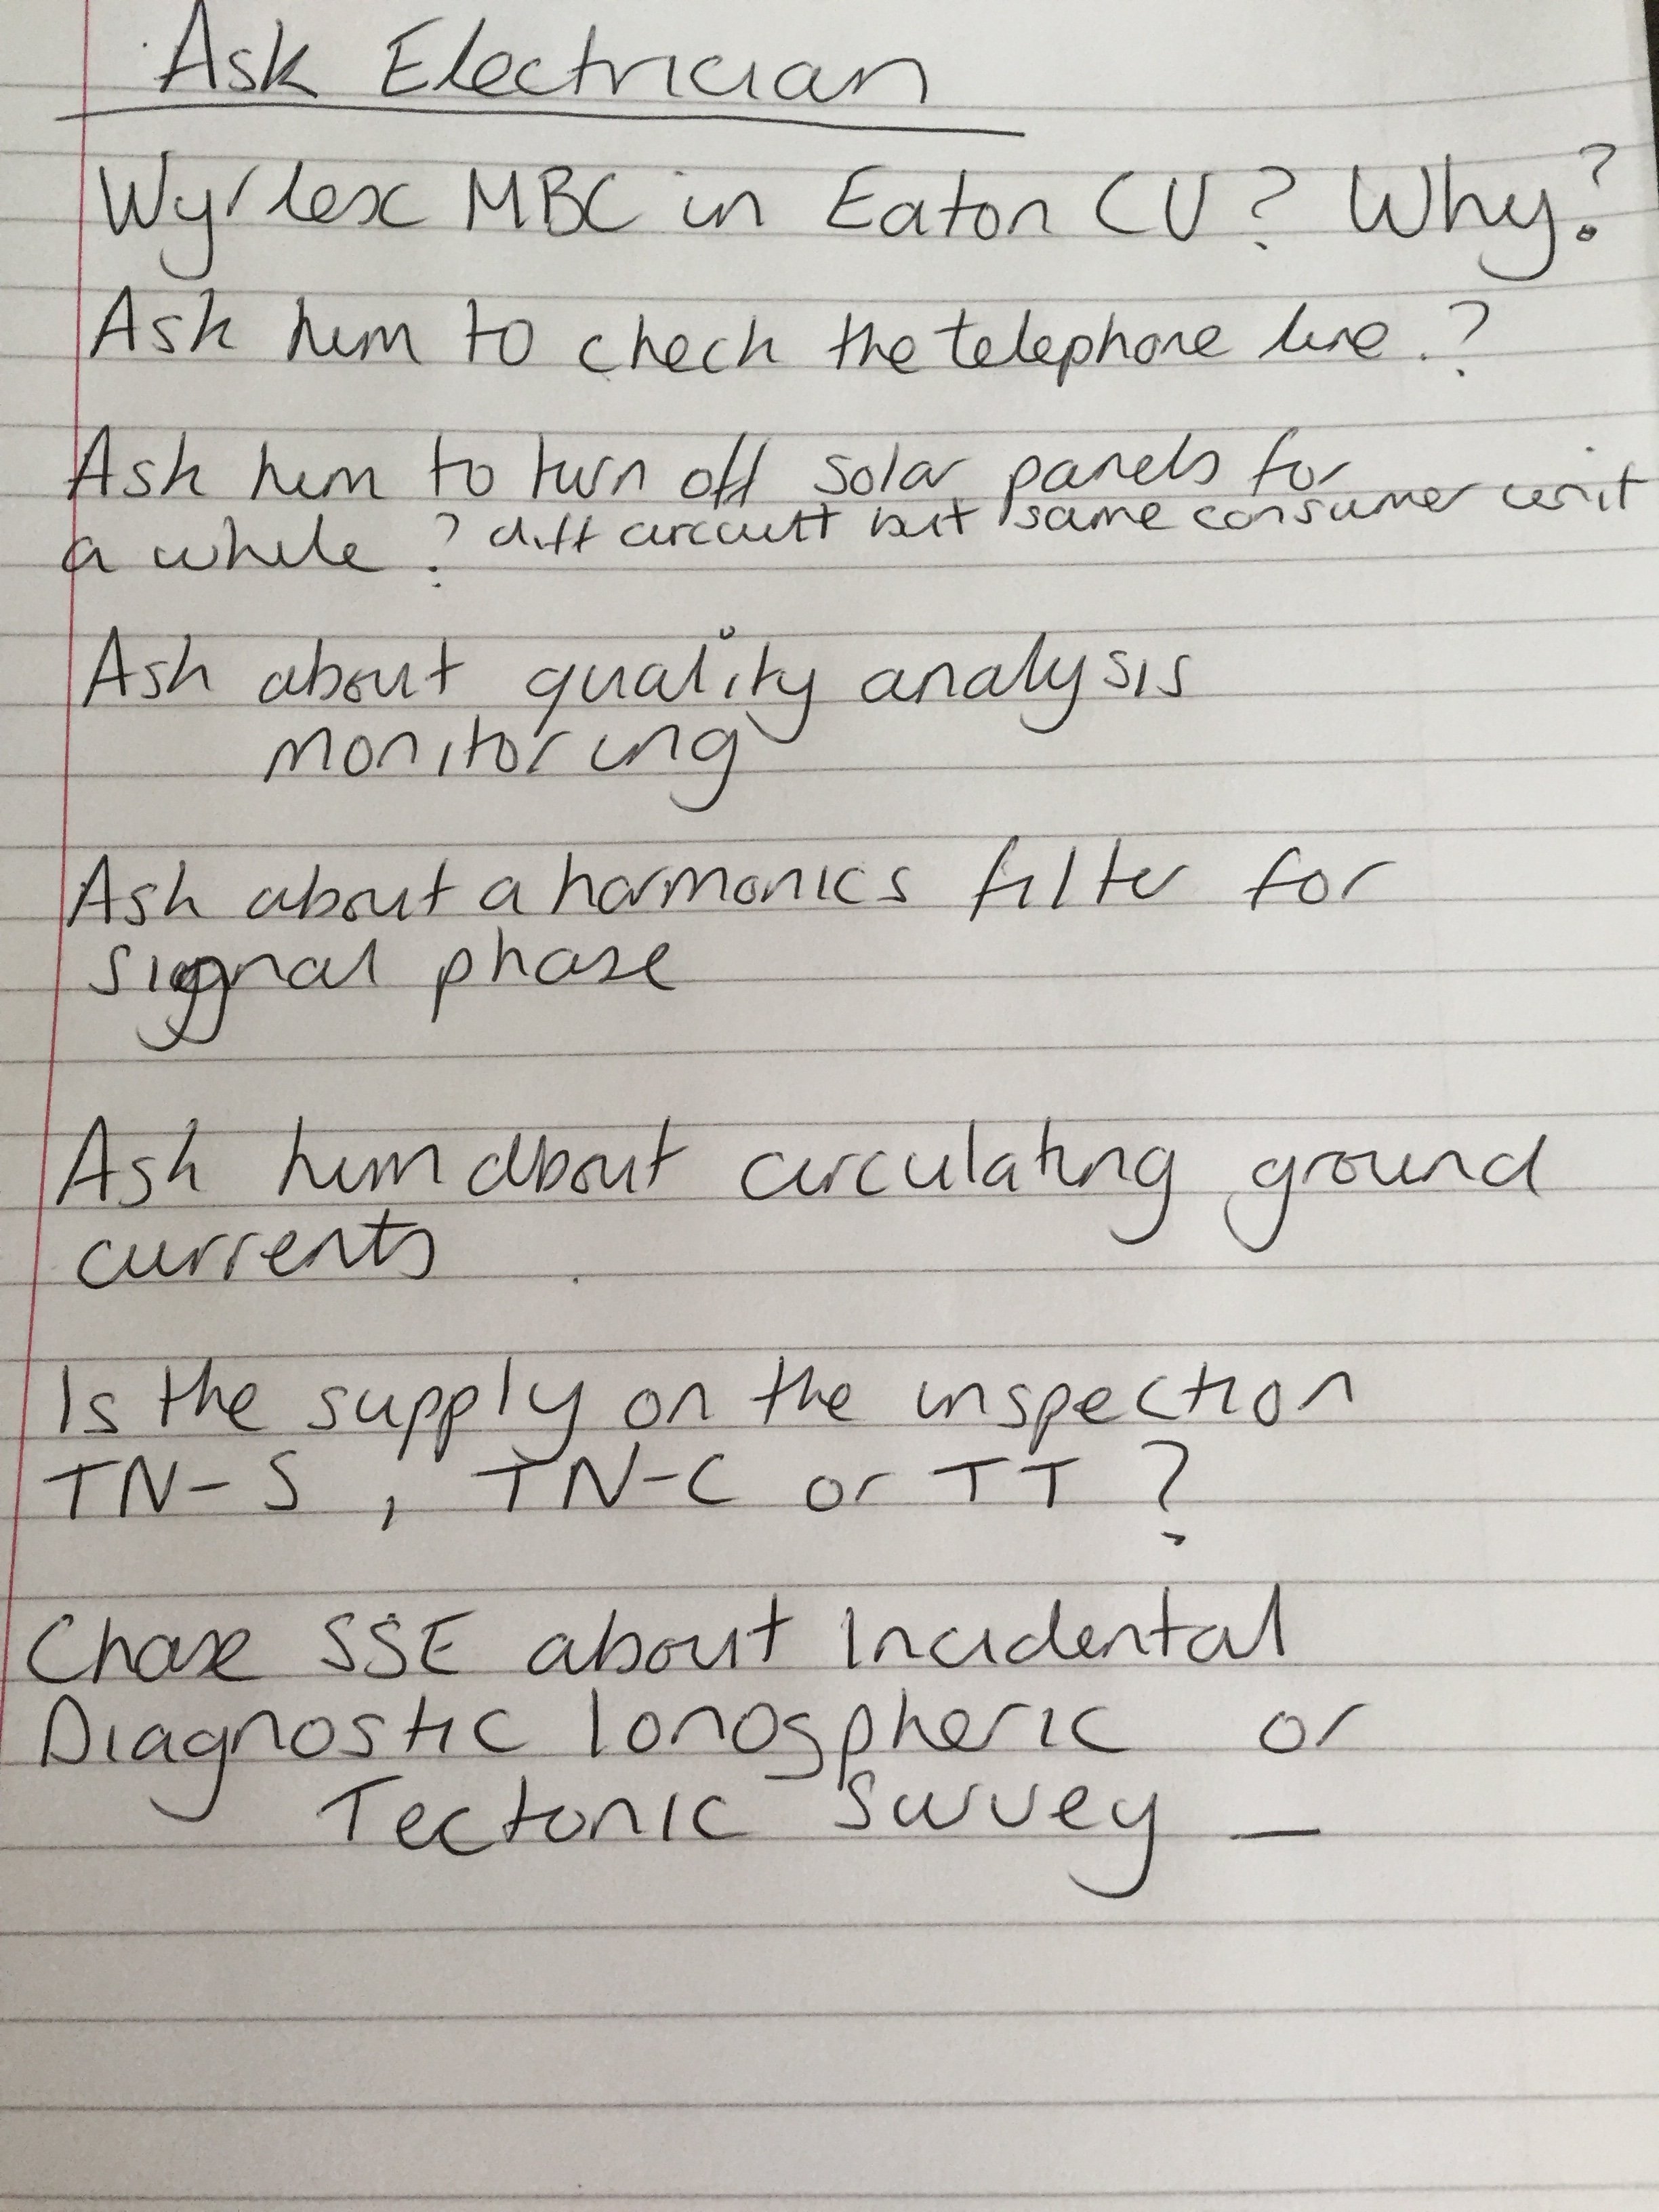 Ask Electrician
Wyrlex MBC in Eaton CU? Why?
Ask him to check the telephone line.?
Ask him to turn off solar panels for
a while? diff circuit but same consumer unit
Ask about quality analysis
monitoring
Ask about a harmonics filter for
signal phase
Ask him about circulating ground
currents
Is the supply on the inspection
TN-S, TN-C or TT?
Chase SSE about Incidental
Diagnostic Ionospheric or
Tectonic Survey —